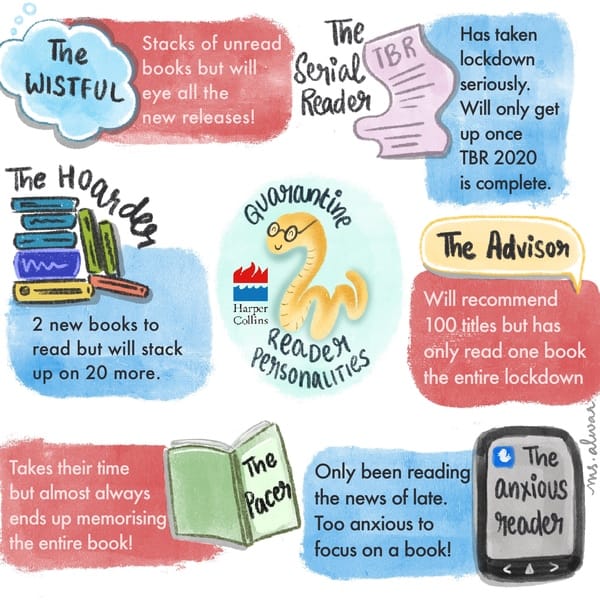 The
WISTFUL
Stacks of unread
books but will
eye all the
new releases!
The
Serial
Reader
TBR
Has taken
lockdown
seriously.
Will only get
up once
TBR 2020
is complete.
The Hoarder
2 new books to
read but will stack
up on 20 more.
Quarantine
Harper
Collins
Reader
Personalities
The Advisor
Will recommend
100 titles but has
only read one book
the entire lockdown
Takes their time
but almost always
ends up memorising
the entire book!
The
Pacer
Only been reading
the news of late.
Too anxious to
focus on a book!
The
anxious
reader
ms.alwar